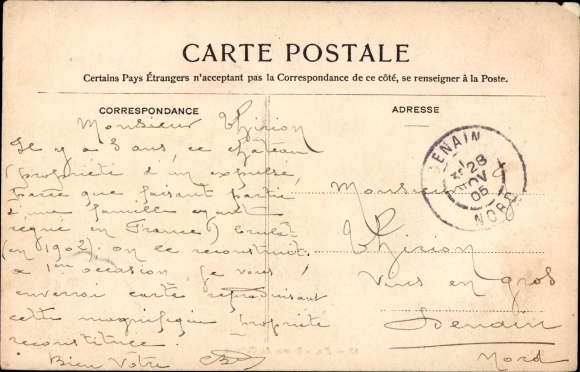 CARTE POSTALE
Certains Pays Étrangers n'acceptant pas la Correspondance de ce côté, se renseigner à la Poste.
CORRESPONDANCE
ADRESSE
Monsieur Thirion
Il y a 3 ans, ce château
(propriété d'un expulsé,
parce que faisant partie
d'une famille ayant
régné en France) brulat
(en 1902), on le reconstruit.
a 1ère occasion, je vous
enverrai carte reproduisant
cette magnifique propriété
reconstituée.
Bien Votre
Monsieur
Thirion
Vins en gros
Denain
Nord
DENAIN
28
NOV
05
NORD